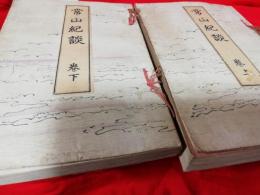 常山紀談
巻上
常山紀談
巻下